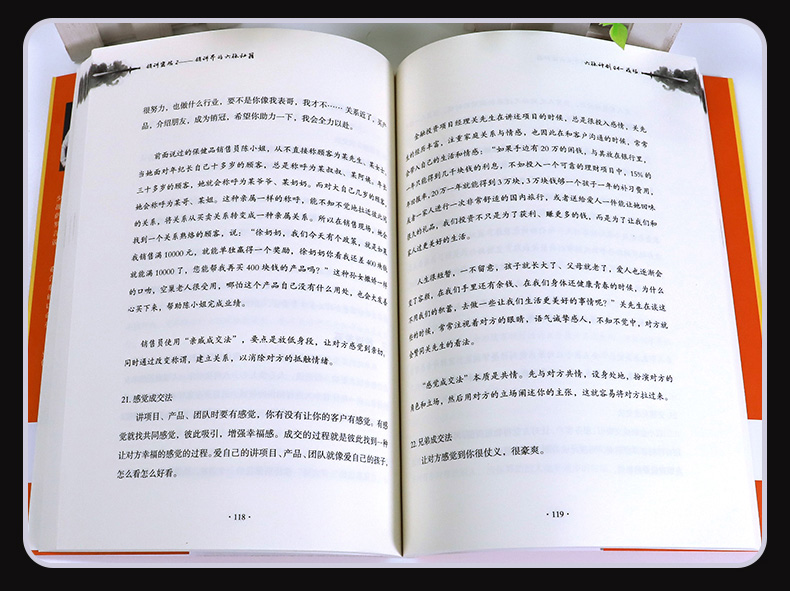 很努力，也做什么行业，要不是你像我表哥，我才不…… 关系近了，买产
品，介绍朋友，成为销冠，希望你助力一下，我会全力以赴。
前面说过的保健品销售员陈小姐，从不直接称顾客为某先生、某女士，
当她面对年纪长自己十多岁的顾客，总是称呼为某叔叔、某阿姨。年长
三十多岁的顾客，她就会称呼为某爷爷、某奶奶。而对大自己几岁的顾客，
她会称呼为某哥、某姐。这种亲属一样的称呼，能不知不觉地拉近彼此间
的关系，将关系从买卖关系转变成一种亲属关系。所以在销售现场，她会
找到一个关系熟络的顾客，说：“徐奶奶，我们今天有个政策，就是如果
我销售满10000元，就能单独赢得一个奖励，徐奶奶你看我还差400块钱
就能满10000了，您能帮我再买400块钱的产品吗？”这种孙女撒娇一样
的口吻，空巢老人很受用，哪怕这个产品自己没有什么用处，也会大发善
心买下来，帮助陈小姐完成业绩。
销售员使用“亲戚成交法”，要点是放低身段，让对方感觉到亲切，
同时通过改变称谓，建立关系，以消除对方的抵触情绪。
21. 感觉成交法
讲项目、产品、团队时要有感觉，你有没有让你的客户有感觉。有感
觉就找共同感觉，彼此吸引，增强幸福感。成交的过程就是彼此找到一种
让对方幸福的感觉的过程。爱自己的讲项目、产品、团队就像爱自己的孩子，
怎么看怎么好看。
· 118 ·
金融投资项目经理关先生在讲述项目的时候，总是很投入感情，关先
生的经历丰富，注重家庭关系与情感，也因此在和客户沟通的时候，常常
会带入自己的生活和情感：“如果手边有20万的闲钱，与其放在银行里，
一年只能得到几千块钱的利息，不如投入一个可靠的理财项目中，15%的
年回报率，20万一年就能得到3万块，3万块钱够一个孩子一年的补习费用，
或者一家人进行一次非常舒适的国内旅行，或者送给爱人一件能让她回味
很久的礼品，我们投资不只是为了获利、赚更多的钱，而是为了让我们和
家人过更美好的生活。
人生很短暂，一不留意，孩子就长大了、父母就老了，爱人也逐渐会
变了容颜，在我们手里还有余钱、在我们身体还健康青春的时候，为什么
不用我们的积蓄，去做一些让我们生活更美好的事情呢？”关先生在谈这
样的时候，常常注视着对方的眼睛，语气诚挚感人，不知不觉中，对方就
会赞同关先生的看法。
“感觉成交法”本质是共情。先与对方共情，设身处地，扮演对方的
角色和立场，然后用对方的立场阐述你的主张，这就容易将对方拉过来。
22. 兄弟成交法
让对方感觉到你很仗义，很豪爽。
· 119 ·